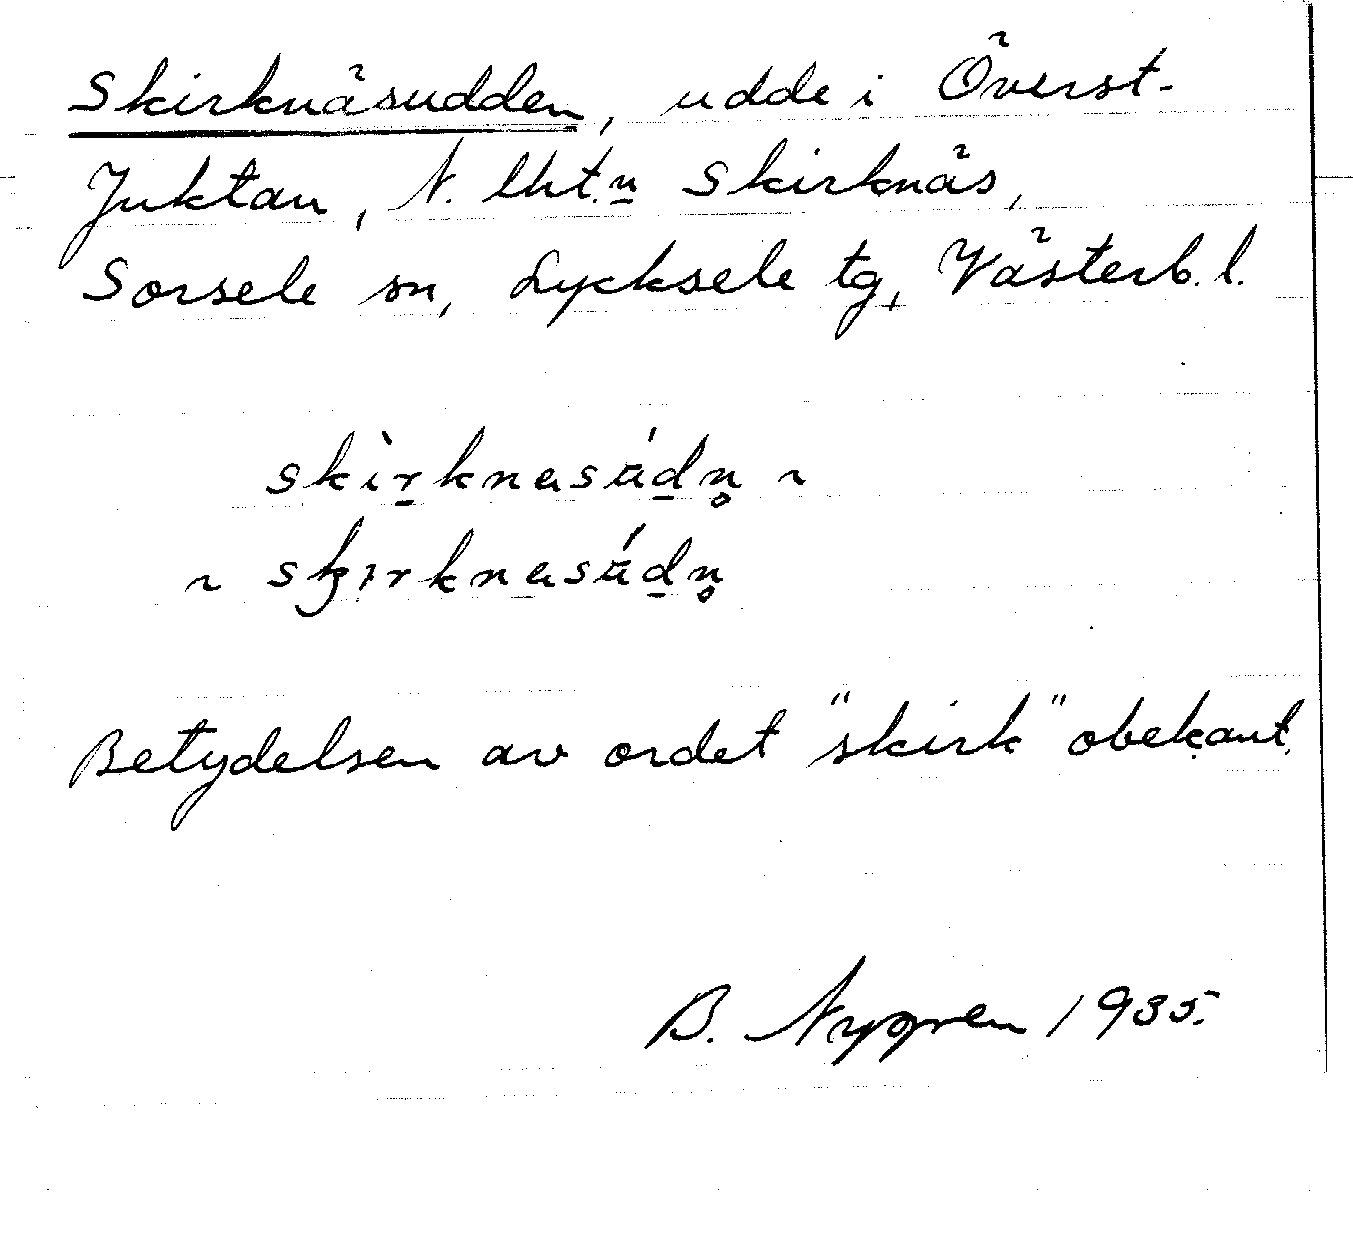 Skirknäsudden, udde i Överst-
Juktan, N. lht.n Skirknäs,
Sorsele sn, Lycksele tg, Västerb. l.
skìrknasúdn̥ ~
~ skirknasúdn̥
Betydelsen av ordet "skirk" obekant.
B. Nygren 1935.